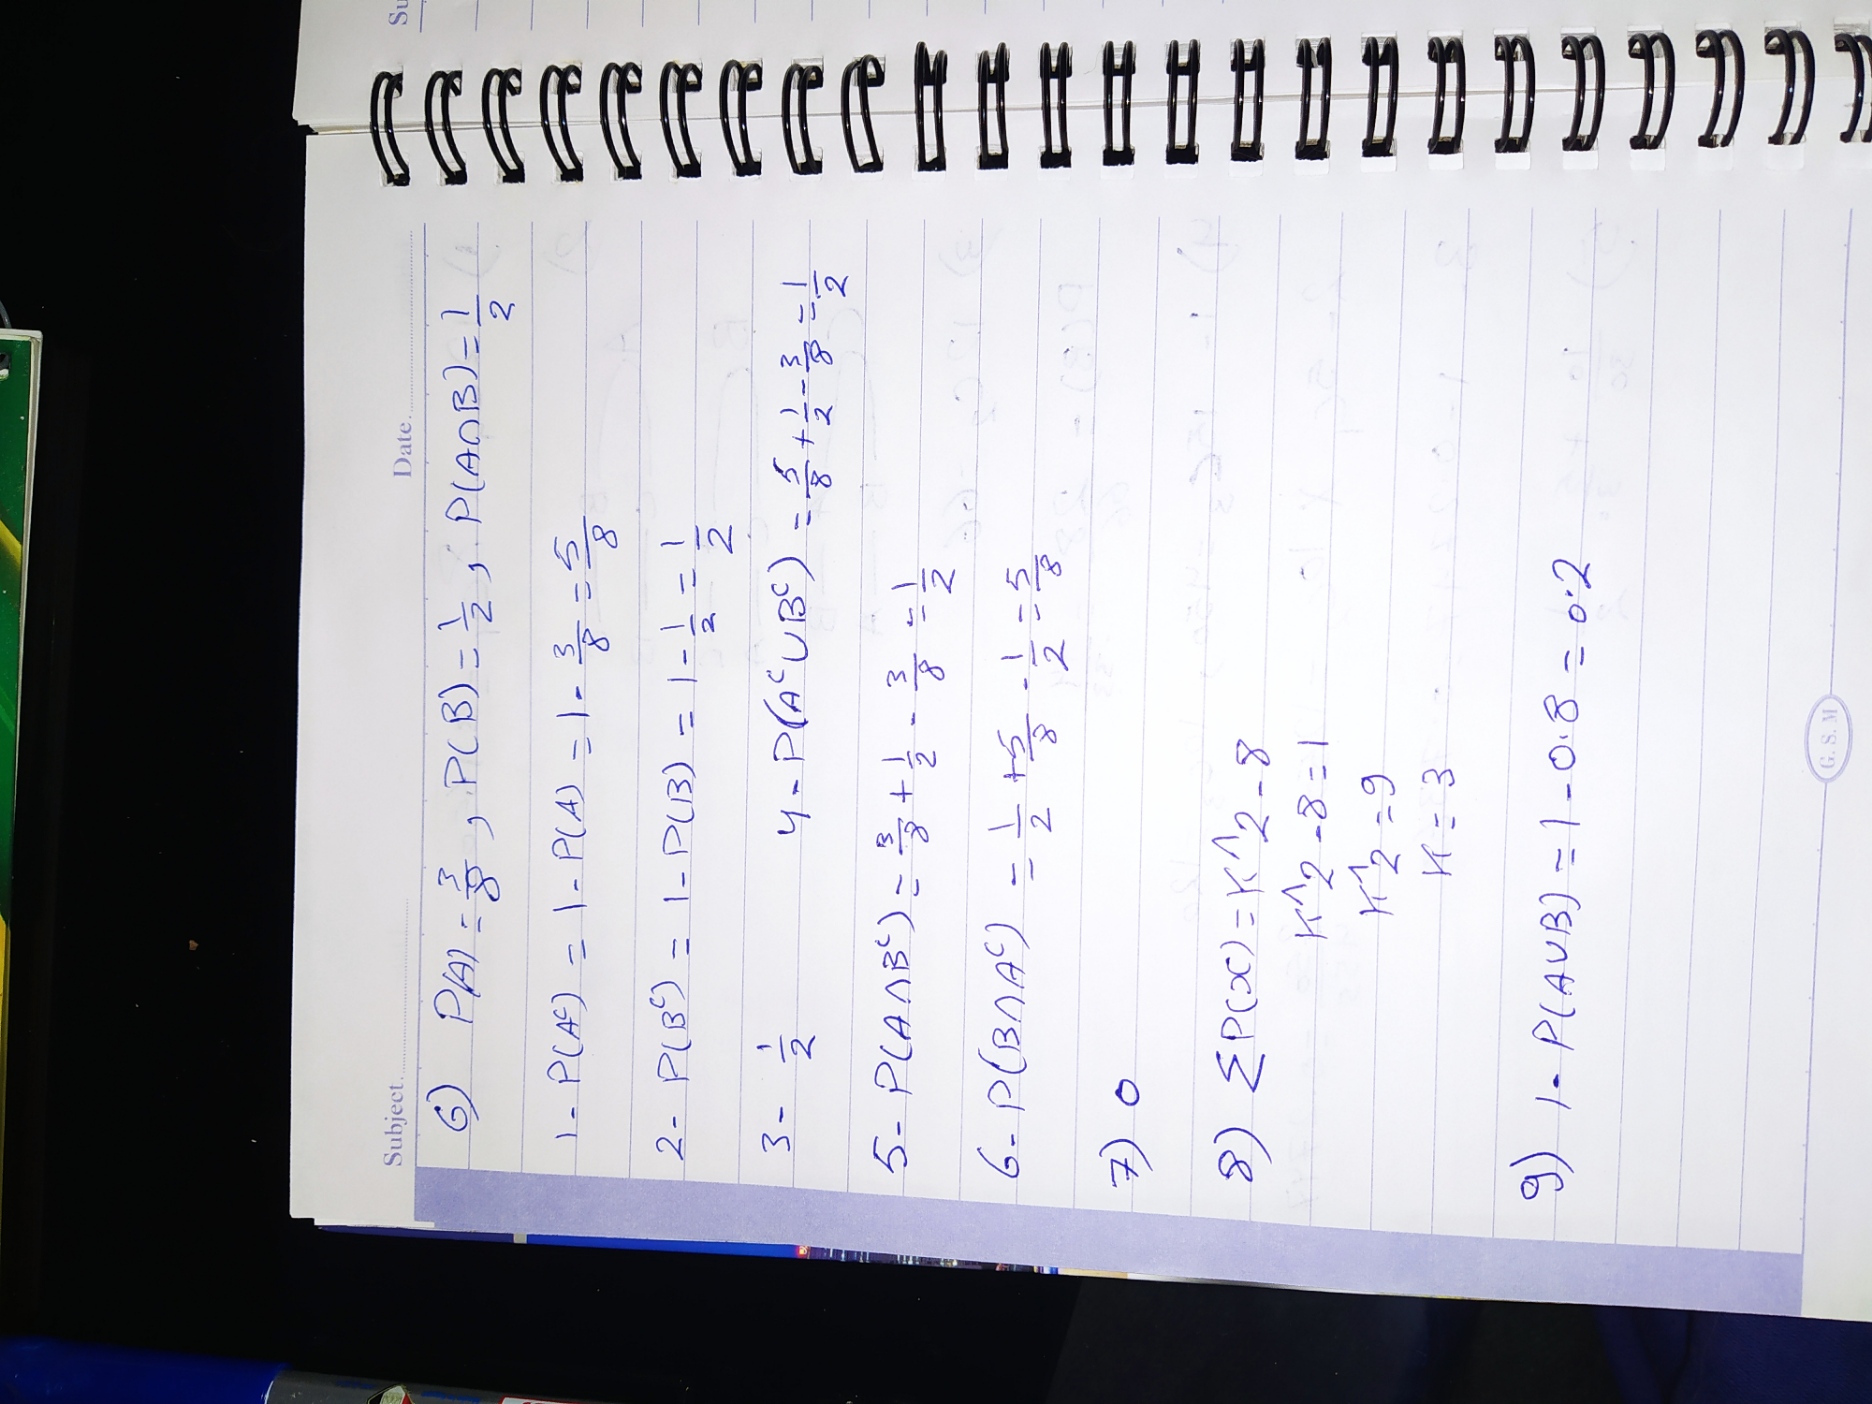 Subject. Date.
6) P(A) = 3/8 , P(B) = 1/2 , P(A∩B) = 1/2
1- P(Aᶜ) = 1 - P(A) = 1 - 3/8 = 5/8
2- P(Bᶜ) = 1 - P(B) = 1 - 1/2 = 1/2
3- 1/2 4- P(Aᶜ∪Bᶜ) = 5/8 + 1/2 - 3/8 = 1/2
5- P(A∩Bᶜ) = 3/8 + 1/2 - 3/8 = 1/2
6- P(B∩Aᶜ) = 1/2 + 5/8 - 1/2 = 5/8
7) 0
8) ΣP(x) = K^2 - 8
K^2 - 8 = 1
K^2 = 9
K = 3
9) 1- P(A∪B) = 1 - 0.8 = 0.2
G. S. M